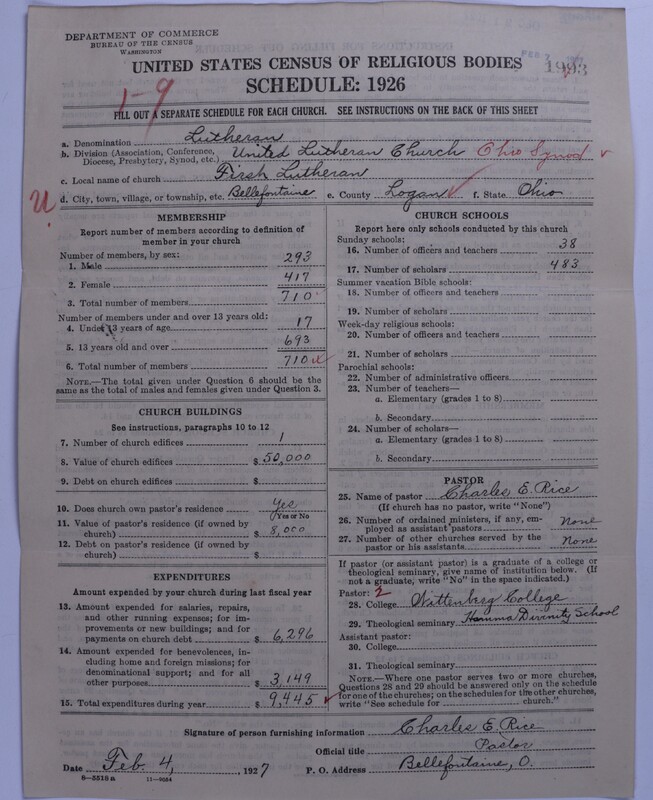 DEPARTMENT OF COMMERCE
BUREAU OF THE CENSUS
WASHINGTON
UNITED STATES CENSUS OF RELIGIOUS BODIES
SCHEDULE: 1926
1-9
FILL OUT A SEPARATE SCHEDULE FOR EACH CHURCH. SEE INSTRUCTIONS ON THE BACK OF THIS SHEET
a. Denomination Lutheran
b. Division (Association, Conference, Diocese, Presbytery, Synod, etc.) United Lutheran Church Ohio Synod
c. Local name of church First Lutheran
d. City, town, village, or township, etc. Bellefontaine e. County Logan f. State Ohio
MEMBERSHIP
Report number of members according to definition of
member in your church
Number of members, by sex:
1. Male 293
2. Female 417
3. Total number of members 710
Number of members under and over 13 years old:
4. Under 13 years of age 17
5. 13 years old and over 693
6. Total number of members 710
NOTE.—The total given under Question 6 should be
same as the total of males and females given under Question 3.
CHURCH BUILDINGS
See instructions, paragraphs 10 to 12
7. Number of church edifices 1
8. Value of church edifices $ 50,000
9. Debt on church edifices $
10. Does church own pastor's residence Yes
Yes or No
11. Value of pastor's residence (if owned by
church) $ 8,000
12. Debt on pastor's residence (if owned by
church) $
EXPENDITURES
Amount expended by your church during last fiscal year
13. Amount expended for salaries, repairs,
and other running expenses; for im-
provements or new buildings; and for
payments on church debt $ 6,296
14. Amount expended for benevolences, in-
cluding home and foreign missions; for
denominational support; and for all
other purposes $ 3,149
15. Total expenditures during year $ 9,445
CHURCH SCHOOLS
Report here only schools conducted by this church
Sunday schools:
16. Number of officers and teachers 38
17. Number of scholars 483
Summer vacation Bible schools:
18. Number of officers and teachers
19. Number of scholars
Week-day religious schools:
20. Number of officers and teachers
21. Number of scholars
Parochial schools:
22. Number of administrative officers
23. Number of teachers—
a. Elementary (grades 1 to 8)
b. Secondary
24. Number of scholars—
a. Elementary (grades 1 to 8)
b. Secondary
PASTOR
25. Name of pastor Charles E. Rice
(If church has no pastor, write "None")
26. Number of ordained ministers, if any, em-
ployed as assistant pastors None
27. Number of other churches served by the
pastor or his assistants None
If pastor (or assistant pastor) is a graduate of a college or
theological seminary, give name of institution below. (If
not a graduate, write "No" in the space indicated.)
Pastor: 2
28. College Wittenberg College
29. Theological seminary Hamma Divinity School
Assistant pastor:
30. College
31. Theological seminary
NOTE.—Where one pastor serves two or more churches,
Questions 28 and 29 should be answered only on the schedule
for one of the churches; on the schedules for the other churches,
write "See schedule for church."
Signature of person furnishing information Charles E. Rice
Official title Pastor
Date Feb. 4, 1927 P. O. Address Bellefontaine, O.
8-5518a 11-9064